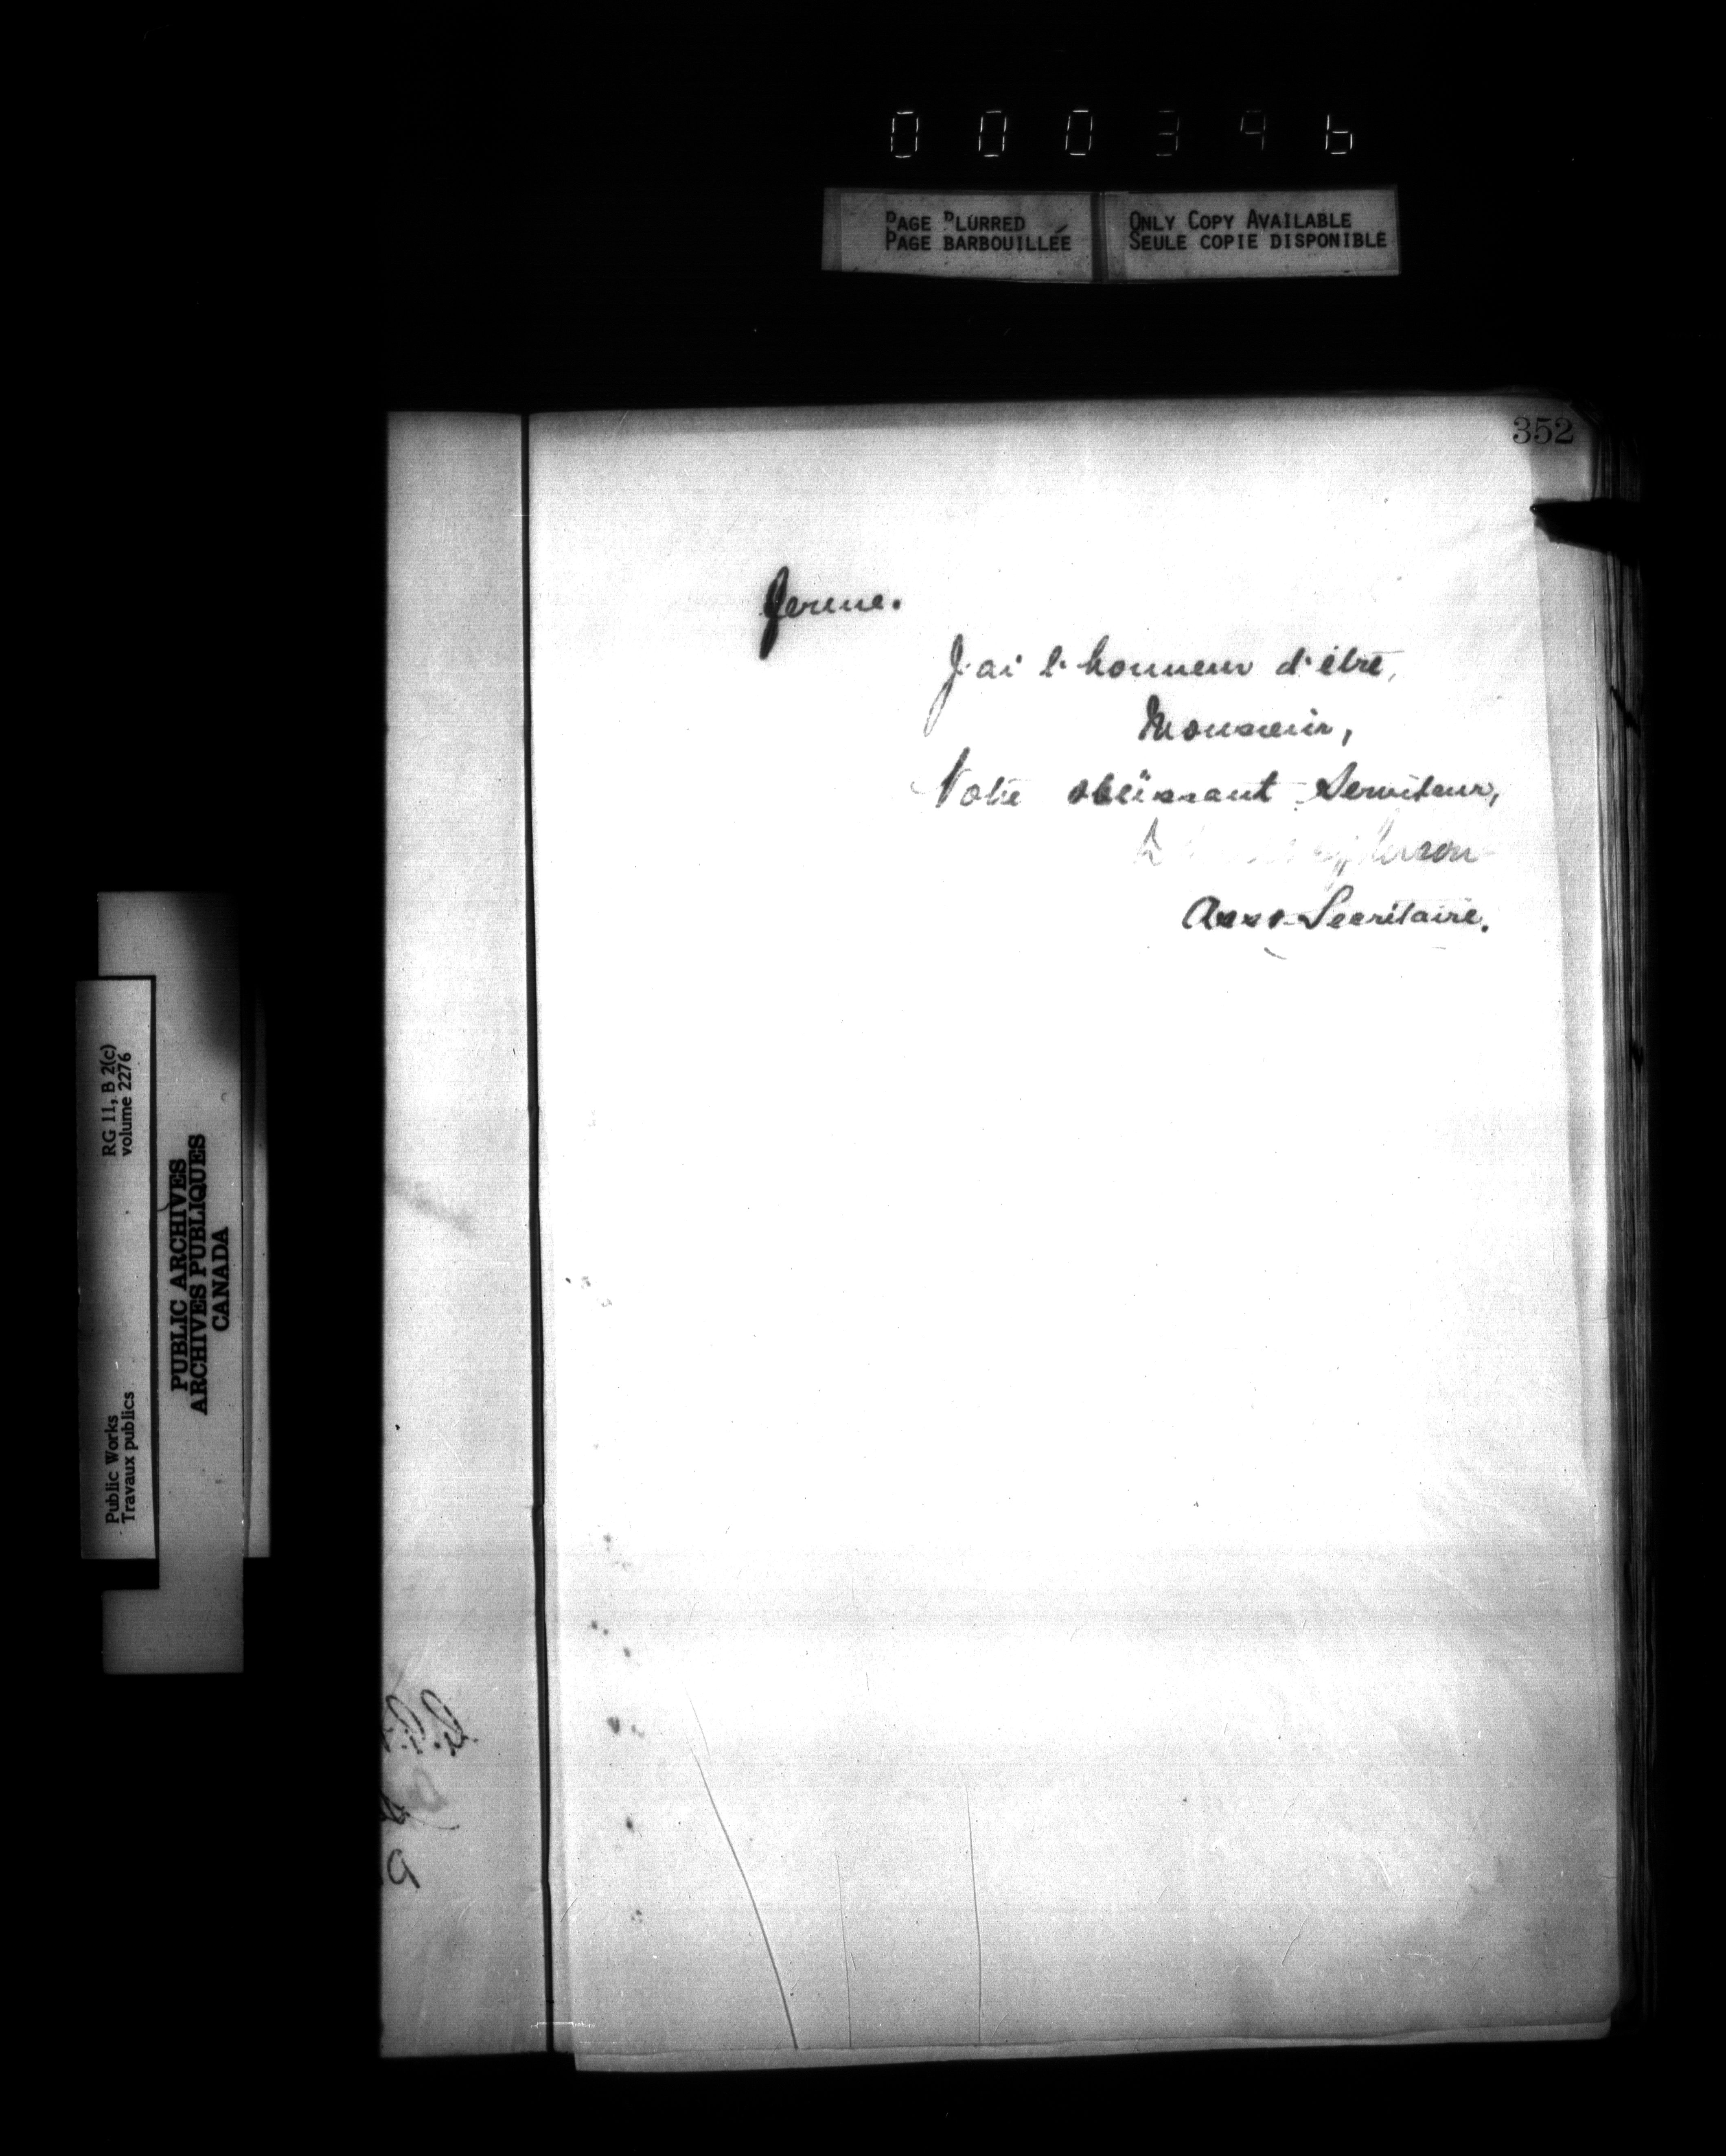 000346
PAGE BLURRED
PAGE BARBOUILLÉE
ONLY COPY AVAILABLE
SEULE COPIE DISPONIBLE
352
ferme.
J'ai l'honneur d'être,
Monsieur,
Votre obéissant Serviteur,
Asst Secrétaire.
RG 11, B 2(c)
volume 2276
Public Works
Travaux publics
PUBLIC ARCHIVES
ARCHIVES PUBLIQUES
CANADA